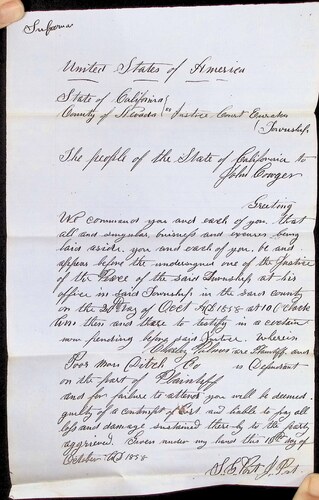 Supoena
United States of America
State of California
County of Nevada } ss Justice Court Eureka
Township
The people of the State of California to
John Conger
Greeting
We command you and each of you that
all and singular, business and excuses being
laid aside you and each of you be and
appear before the undersigned one of the Justice
of the Peace of the said Township at his
office in said Township in the said county
on the 20th day of Oct AD 1858 at 10 O Clock
then and there to testify in a certain
now pending before said Justice. Wherein
Charley are Plaintiff and
Poor Man Ditch Co is Defendant
on the part of Plaintiff
and for failure to attend you will be deemed
guilty of a contempt of Court and liable to pay all
loss and damage sustained there by to the party
aggrieved. Given under my hand this 16th day of
October AD 1858
J. P.